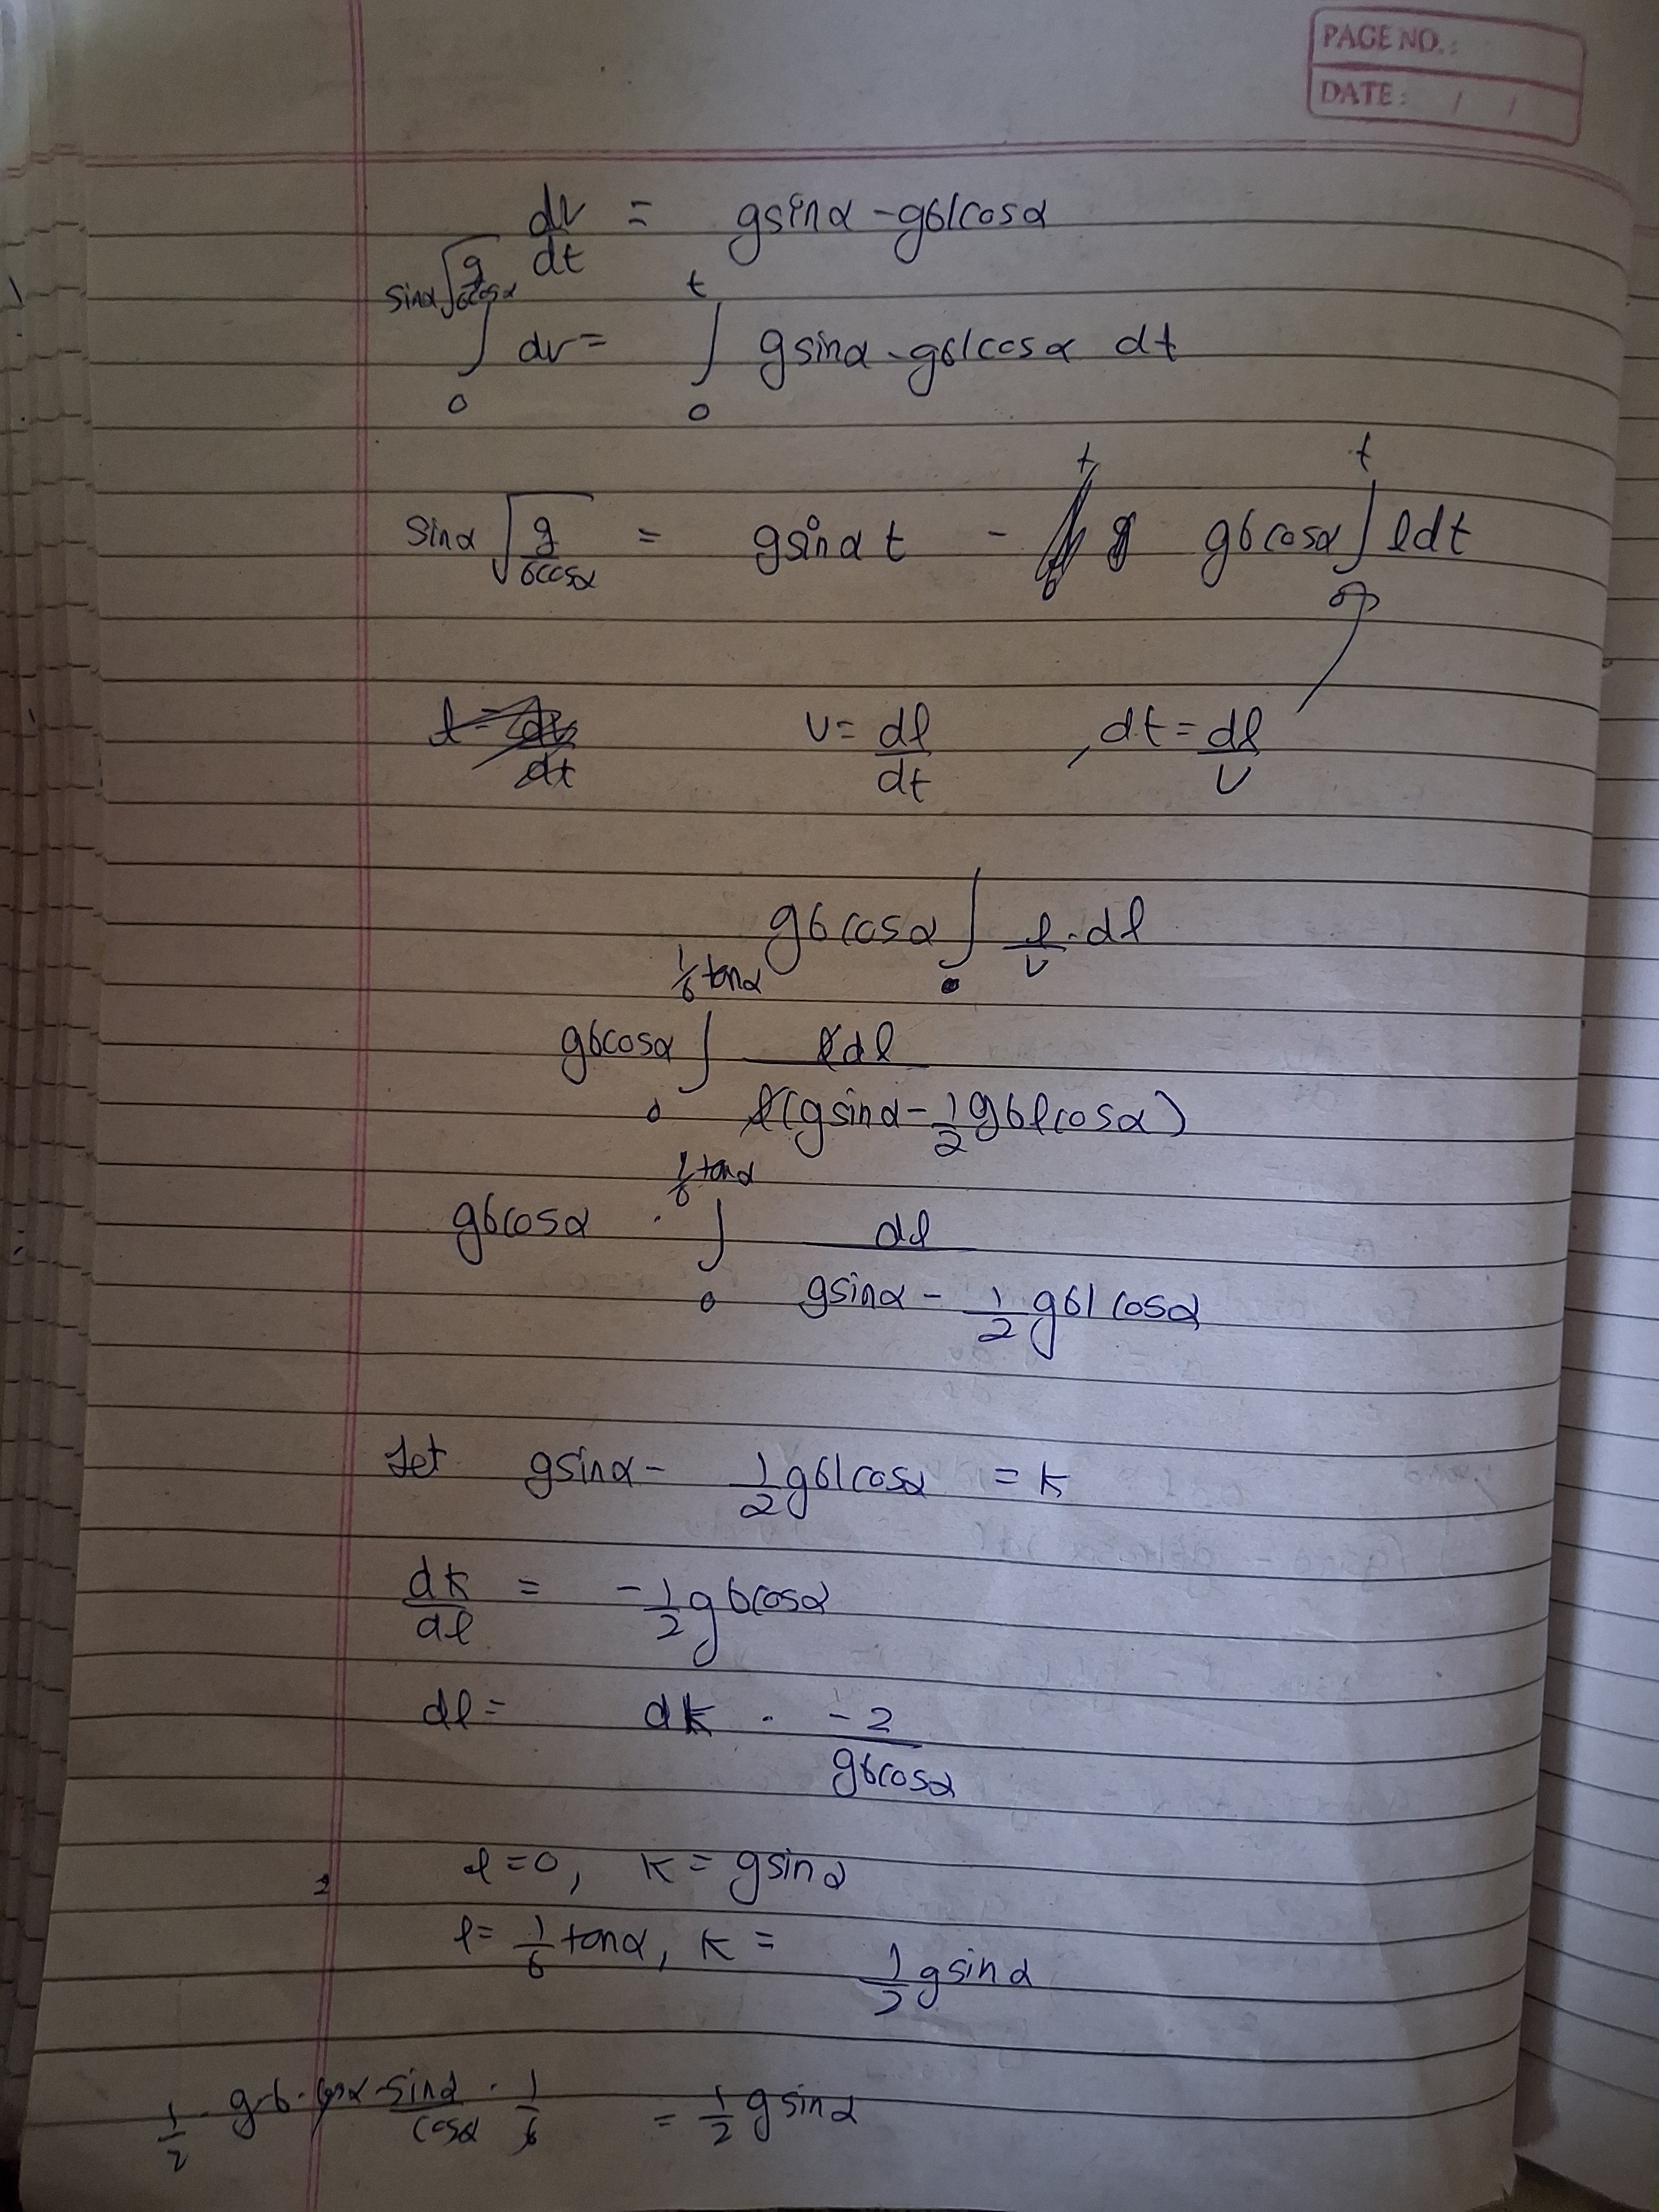 PAGE NO.:
DATE: / /
dv/dt = gsinα - gblcosα
∫₀^(sinα√(g/bcosα)) dv = ∫₀^t gsinα - gblcosα dt
sinα √(g/bcosα) = gsinα t - gbcosα ∫₀^t ldt
v = dl/dt , dt = dl/v
gbcosα ∫₀ l/v · dl
gbcosα ∫₀^(1/b tanα) ldl / l(gsinα - 1/2 gblcosα)
gbcosα · ∫₀^(1/b tanα) dl / gsinα - 1/2 gbl cosα
Let gsinα - 1/2 gblcosα = k
dk/dl = -1/2 gbcosα
dl = dk · -2/gbcosα
l=0, k = gsinα
l = 1/b tanα, k = 1/2 gsinα
1/2 · g·b·cosα · sinα/cosα · 1/b = 1/2 gsinα